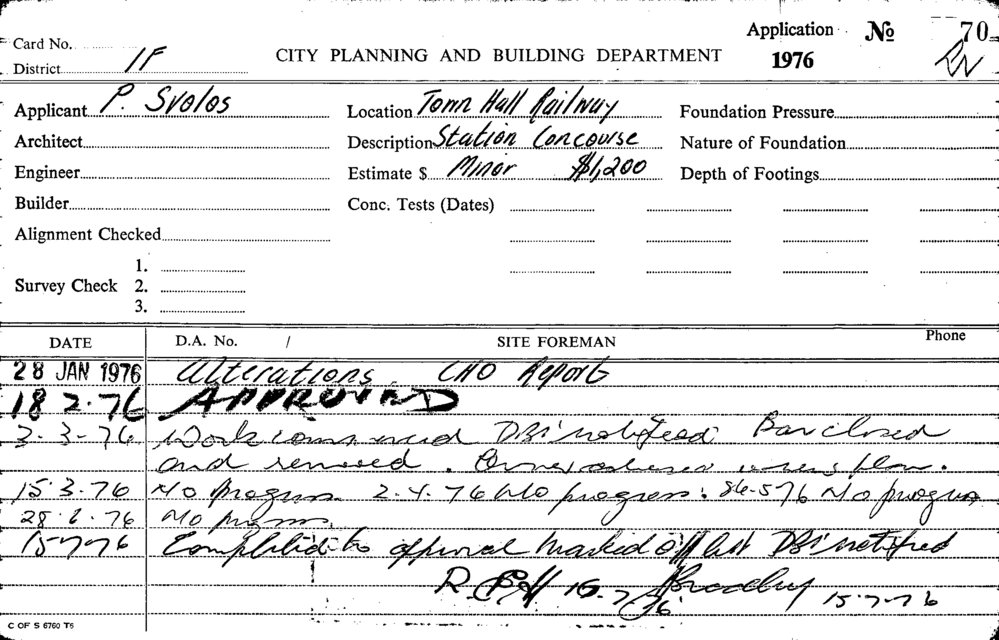 Application No 70
Card No.
District 1F
CITY PLANNING AND BUILDING DEPARTMENT
1976
Applicant P. Svolos
Location Town Hall Railway
Foundation Pressure
Architect
Description Station Concourse
Nature of Foundation
Engineer
Estimate $ Minor $1,200
Depth of Footings
Builder
Conc. Tests (Dates)
Alignment Checked
Survey Check
1.
2.
3.
DATE D.A. No. / SITE FOREMAN Phone
28 JAN 1976 Alterations. CHO Report
18 2.76 APPROVED
3-3-76 Work commenced DBI notified Bar closed
and removed. plan.
15.3.76 No progress 2.4.76 No progress. 5 76 No progress
28. .76 No progress.
15-7-76 Completed to approval Marked off list DBI notified
R. 15.7.76
15-7-76
C OF S 6760 T6